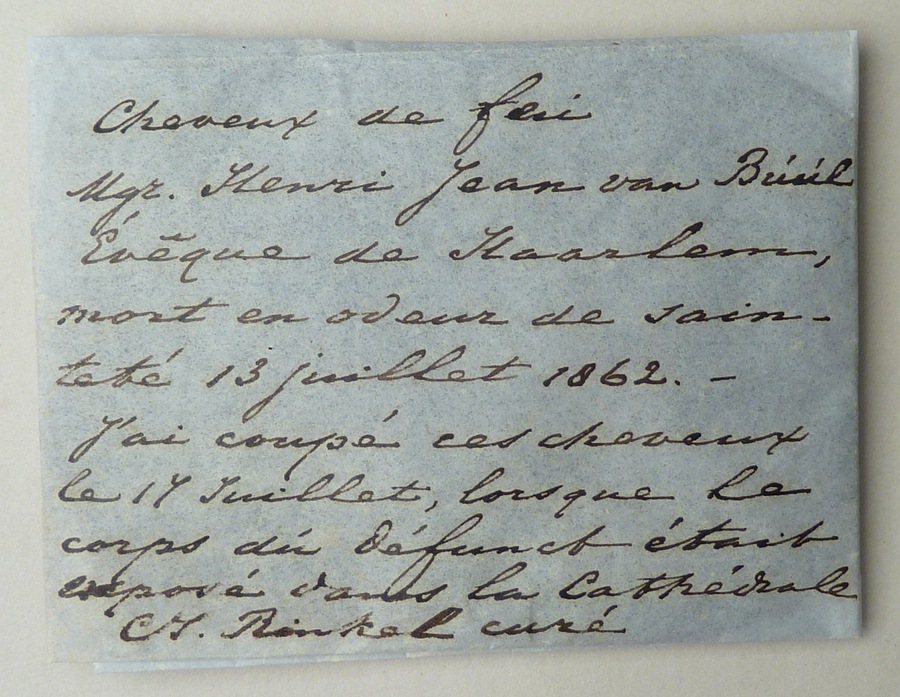 Cheveux de feu
Mgr. Henri Jean van Búúl
Évêque de Haarlem,
mort en odeur de sain-
teté 13 juillet 1862. -
J'ai coupé ces cheveux
le 17 Juillet, lorsque le
corps dú défunct était
exposé dans la Cathédrale
CJ. Rinkel curé